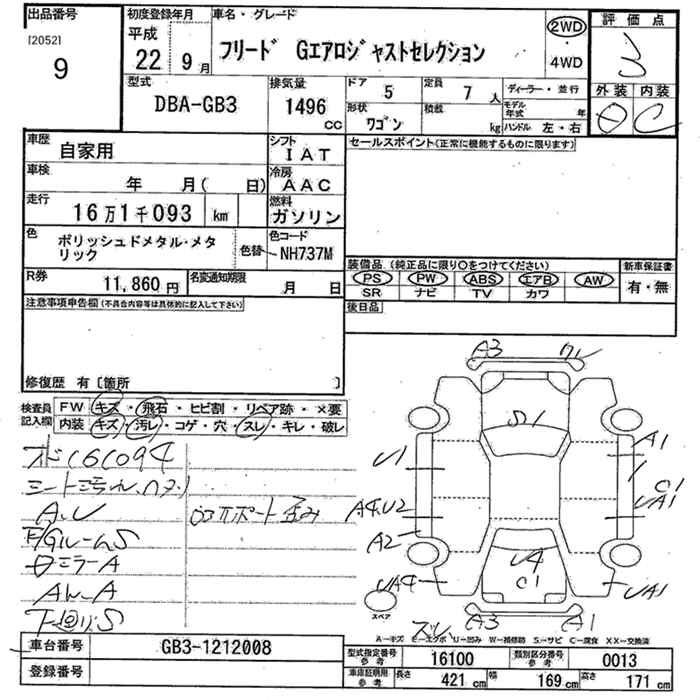 出品番号
[2052]
9
初度登録年月
平成
22 9月
車名・グレード
フリード Gエアロジャストセレクション
2WD
・
4WD
評価点
3
外装 内装
C
型式
DBA-GB3
排気量
1496
CC
ドア 5
定員 7 人
ディーラー・並行
形状 ワゴン
積載 kg
モデル年式 年
ハンドル 左・右
車歴 自家用
シフト IAT
セールスポイント(正常に機能するものに限ります)
車検 年 月( 日)
冷房 AAC
走行 16万1千093 km
燃料 ガソリン
色 ポリッシュドメタル・メタリック
色替
色コード NH737M
装備品(純正品に限り○をつけてください)
新車保証書
PS PW ABS エアB AW
SR ナビ TV カワ
有・無
R券 11,860円
名変通知期限 月 日
後日品
注意事項申告欄(不具合内容等は具体的に記入して下さい)
修復歴 有〔箇所 〕
検査員記入欄
FW キズ・飛石・ヒビ割・リペア跡・×要
内装 キズ・汚レ・コゲ・穴・スレ・キレ・破レ
A.U
ミラーA
AW-A
下廻りS
A3
S1
U1
A1
C1
UA1
A4.U2
A2
U4
C1
UA4
UA1
A3
A1
スペア
A―キズ E―エクボ U―凹み W―補修跡 S―サビ C―腐食 XX―交換済
車台番号 GB3-1212008
登録番号
型式指定番号 参考 16100
類別区分番号 参考 0013
車庫証明用 参考 長さ 421 cm 幅 169 cm 高さ 171 cm